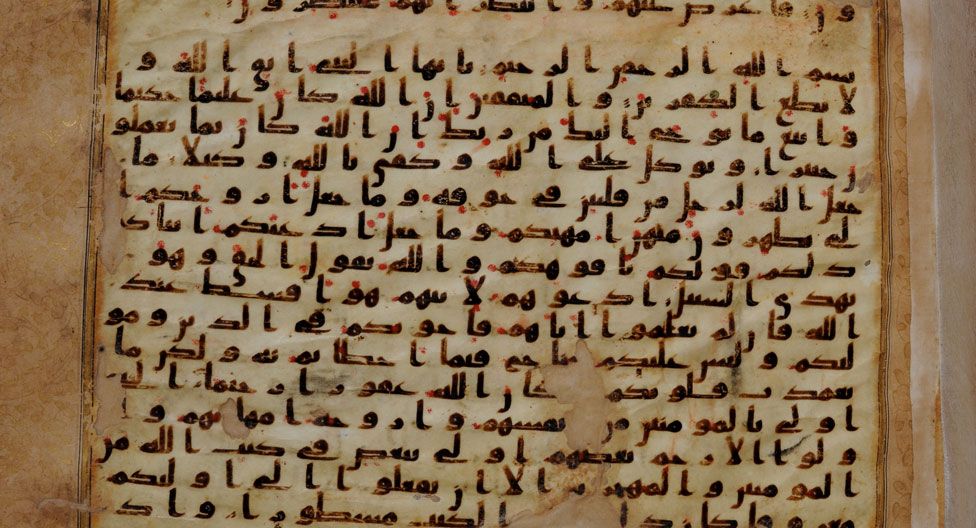 و ن فاعرض عنهم وانتظر انهم منتظرون
بسم الله الرحمن الرحيم يايها النبي اتق الله و
لا تطع الكفرين والمنفقين ان الله كان عليما حكيما
واتبع ما يوحى اليك من ربك ان الله كان بما تعملو
ن خبيرا وتوكل على الله وكفى بالله وكيلا ما
جعل الله لرجل من قلبين في جوفه وما جعل ازوجكم ا
لي تظهرون منهن امهتكم وما جعل ادعيكم ابناكم
ذلكم قولكم بافوهكم والله يقول الحق وهو
يهدي السبيل ادعوهم لابيهم هو اقسط عند
الله فان لم تعلموا اباهم فاخونكم في الدين ومو
ليكم وليس عليكم جناح فيما اخطاتم به ولكن ما
تعمدت قلوبكم كان الله غفورا رحيما النبي
اولى بالمومنين من انفسهم وازوجه امهتهم وا
ولوا الارحم بعضهم اولى ببعض في كتب الله من
المومنين والمهجرين الا ان تفعلوا الى اوليكم
معروفا كان الكتب مسطورا واذ